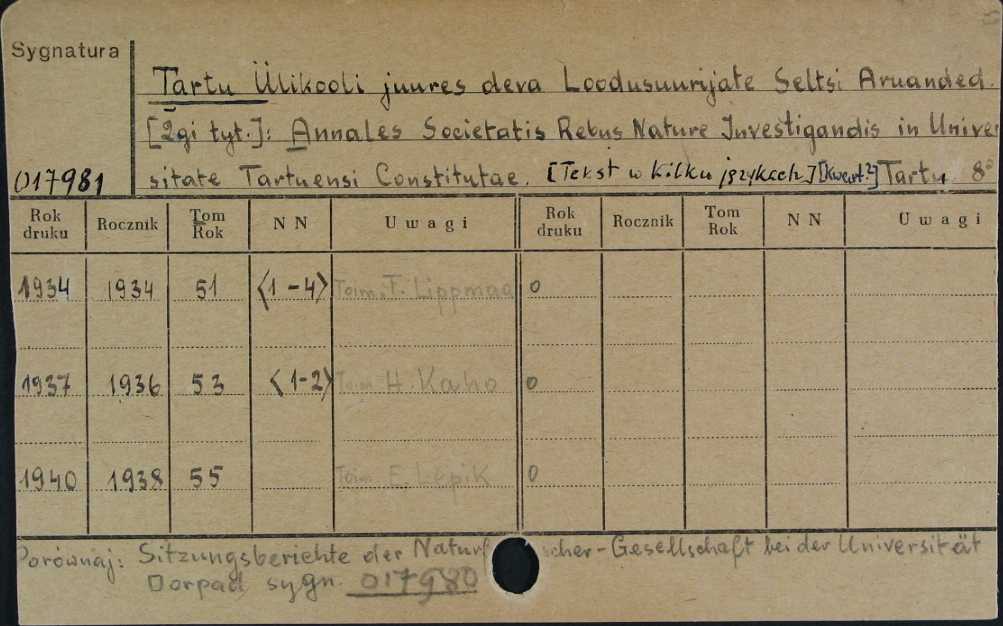 Sygnatura
Tartu Ülikooli juures deva Loodusuurijate Seltsi Aruanded.
[2gi tyt.]: Annales Societatis Rebus Nature Investigandis in Univer
017981 sitate Tartuensi Constitutae. [Tekst w kilku językach] [kwart?] Tartu 8°
Rok druku Rocznik Tom Rok NN Uwagi Rok druku Rocznik Tom Rok NN Uwagi
1934 1934 51 <1-4> Toim. T. Lippmaa 0
1937 1936 53 <1-2> Toim H. Kaho 0
1940 1938 55 Toim E. Lepik 0
Porównaj: Sitzungsberichte der Naturf scher-Gesellschaft bei der Universität
Dorpad sygn. 017980